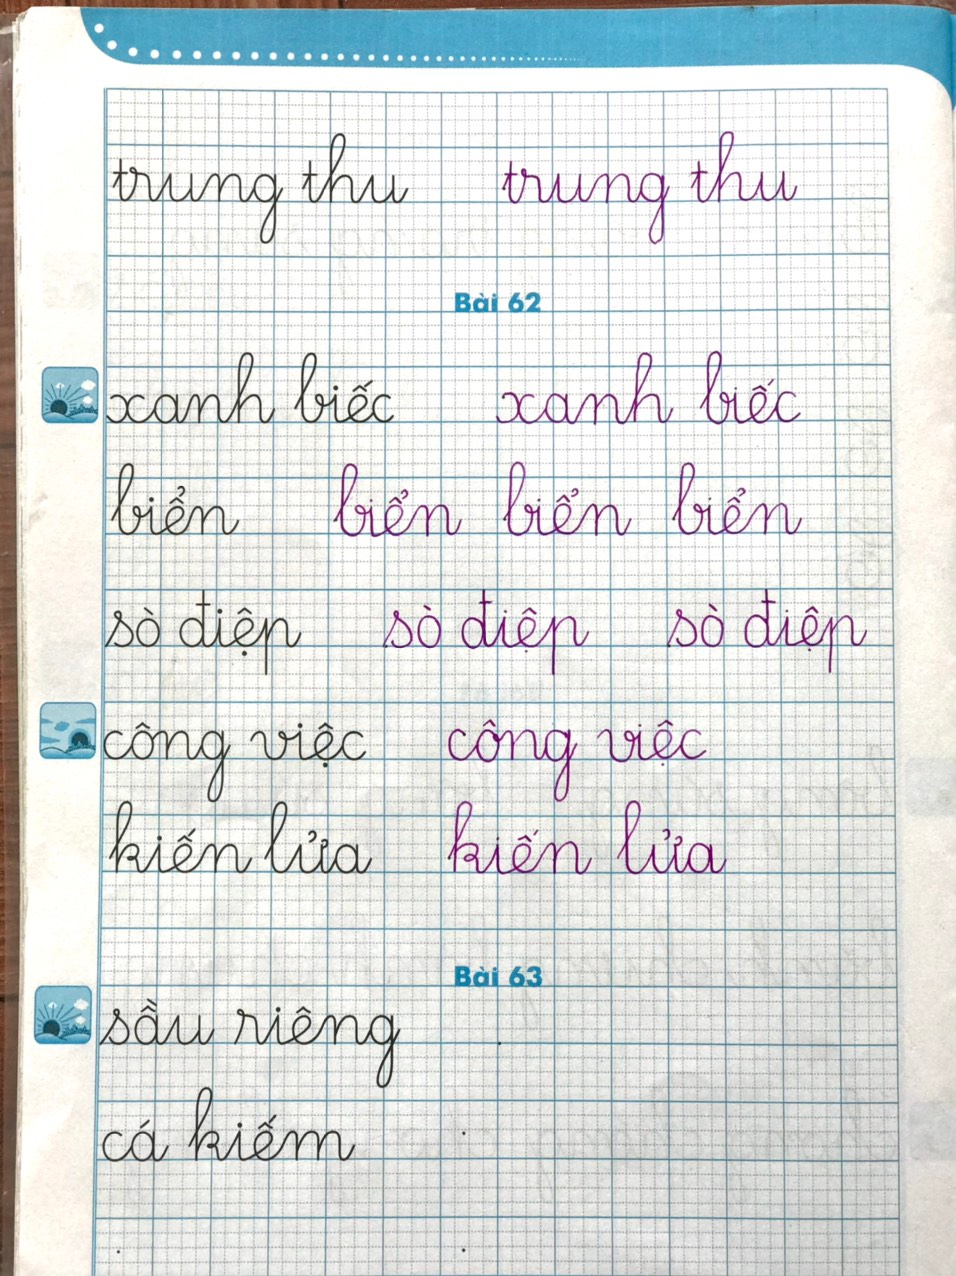 trung thu trung thu
Bài 62
xanh biếc xanh biếc
biển biển biển biển
sò điệp sò điệp sò điệp
công việc công việc
kiến lửa kiến lửa
Bài 63
sầu riêng
cá kiếm